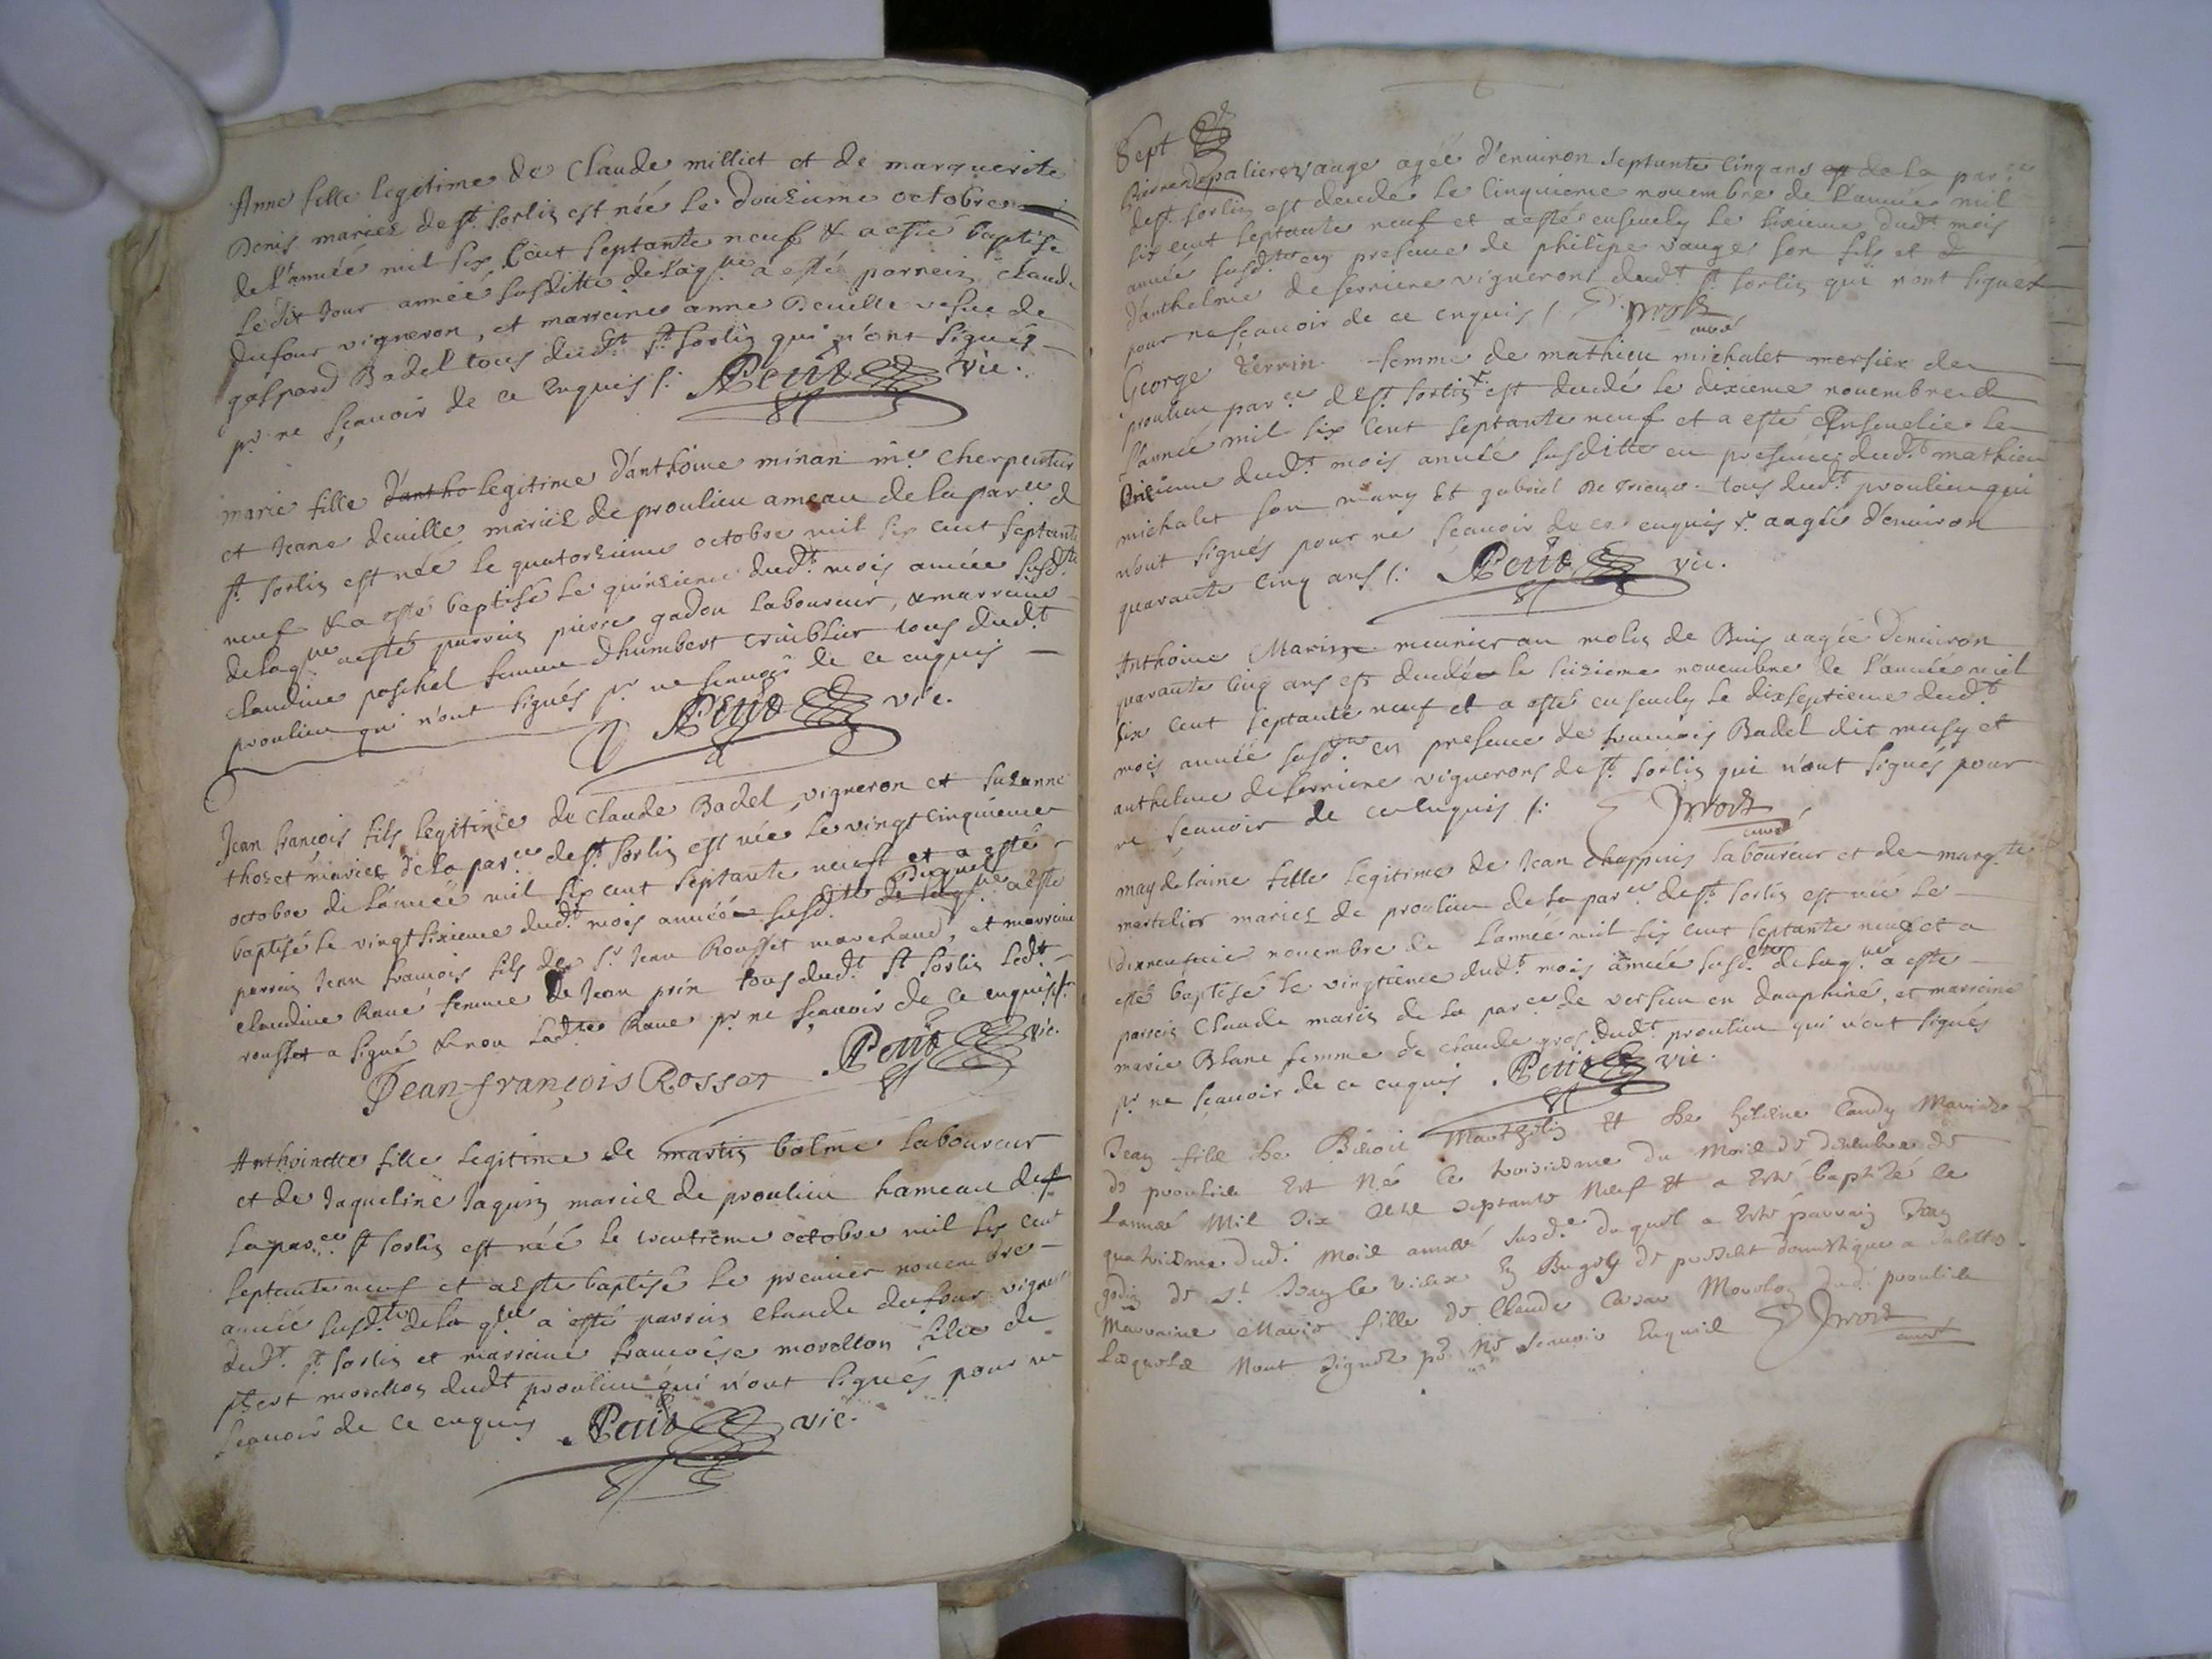 Anne fille legitime de Claude milliet et de marguerite
Denis mariez de st. sorlin est née le douzieme octobre
de l'année mil six cent septante neuf & a esté baptisé
ledit jour année susditte de laq.lle a esté parrein claude
dufour vigneron, et marreine anne Deuille vefue de
gaspard Badel tous dud.t st. sorlin qui n'ont signés
pr. ne sçauoir de ce enquis /: Petit vic.
marie fille d'antho legitime d'anthoine minan m.e cherpentier
et Jeane deuille mariez de proulieu ameau de la par.ce d
st. sorlin est née le quatorzieme octobre mil six cent septante
neuf & a esté baptisé le quinzieme dud.t mois année susd.tte
de laq.lle a esté parrein pierre gadou laboureur, & marreine
claudine paschal femme d'humbert criblier tous dud.t
proulieu qui n'ont signés pr. ne scauoir de ce enquis
Petit vic.
Jean françois fils legitime de claude Badel, vigneron et suzanne
thozet mariez de la par.ce de st. sorlin est née le vingt cinquieme
octobre de l'année mil six cent septante neuf et a esté
baptisé le vingt sixieme dud.t mois année susd.tte de laq.lle duquel a esté
parrein Jean francois fils de s.r Jean Rousset marchand, et marreine
claudine Raue femme de Jean prin tous dud.t st. sorlin led.t
rousset a signé & non lad.tte Raue pr. ne sçauoir de ce enquis /:
Jean françois Rosset Petit vic.
Anthoinette fille legitime de martin bolme laboureur
et de Jaqueline Jaquin mariez de proulieu hameau de
la par.ce st. sorlin est née le trentieme octobre mil six cent
septante neuf et a esté baptisé le premier nouembre
année susd.tte de la q.lle a esté parrein claude dufour vigneron
dud.t st. sorlin et marreine francoise morellon fille de
morellon dud.t proulieu qui n'ont signés pour ne
scauoir de ce enquis Petit vic.
Sept
vauge agée d'enuiron septante cinq ans de la par.ce
de st. sorlin est decedé le cinquieme nouembre de l'année mil
six cent septante neuf et a esté enseuely le sixieme dud.t mois
année susd.tte en presence de philipe vauge son fils et d
d'anthelme de serriere vignerons dud.t st. sorlin qui n'ont signes
pour ne sçauoir de ce enquis / curé
George Terrin femme de mathieu michalet mersier de
proulieu par.ce de st. sorlin x est decedé le dixieme nouembre d
l'année mil six cent septante neuf et a esté Ensevelie le
onzieme dud.t mois année susditte en presence dud.t mathieu
michalet son mary et gabriel tous dud.t proulieu qui
n'ont signés pour ne scauoir de ce enquis x aagée d'enuiron
quarante cinq ans /: Petit vic.
Anthoine Marin meunier au molin de Buis aagée d'enuiron
quarante cinq ans est decedé le seizieme nouembre de l'année mil
six cent septante neuf et a esté enseuely le dixseptieme dud.t
mois année susd.tte en presence de francois Badel dit musy et
anthelme de serriere vignerons de st. sorlin qui n'ont signés pour
ne sçauoir de ce enquis /: curé
maydelaine fille legitime de Jean chappuis laboureur et de marg.te
martelier mariez de proulieu de la par.ce de st. sorlin est née le
dixneufuie nouembre de l'année mil six cent septante neuf et a
esté baptisé le vingtieme dud.t mois année susd.tte de laq.lle a esté
parrein Claude marin de la par.ce de versieu en dauphiné, et marreine
marie Blanc femme de claude gros dud.t proulieu qui n'ont signés
pr. ne scauoir de ce enquis Petit vic.
Jean fils de Benoit Manthelin et de helene Candy Mariés
de proulieu est né le troisiesme du Mois de decembre de
Lannée Mil six cents septante Neuf et a esté baptizé le
quatriesme dud. Mois année susd.e duquel a esté parrain Jean
godin de st. Jean le vieux en Bugey de present domestique a Salette
Marraine Marie fille de Claude Morelon dud. proulieu
Lesquels Nont signés pr. Ne scauoir Enquis curé